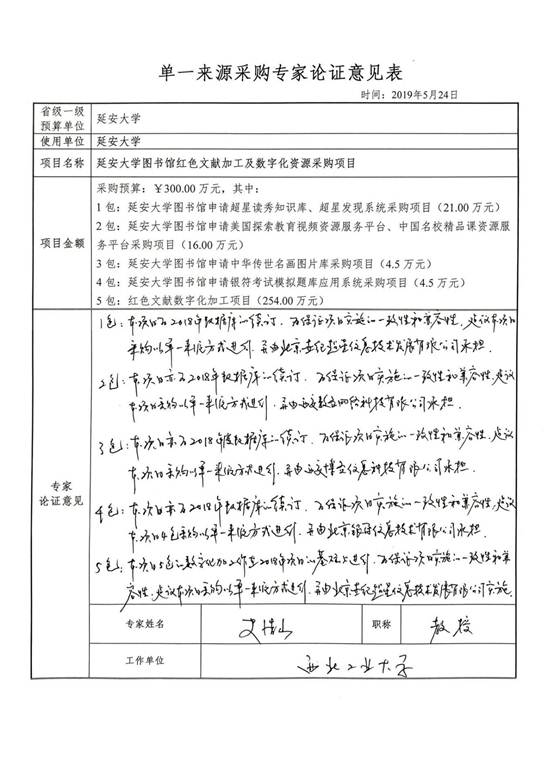 单一来源采购专家论证意见表
时间：2019年5月24日
省级一级
预算单位
延安大学
使用单位
延安大学
项目名称
延安大学图书馆红色文献加工及数字化资源采购项目
项目金额
采购预算：￥300.00 万元，其中：
1 包：延安大学图书馆申请超星读秀知识库、超星发现系统采购项目（21.00 万元）
2 包：延安大学图书馆申请美国探索教育视频资源服务平台、中国名校精品课资源服
务平台采购项目（16.00 万元）
3 包：延安大学图书馆申请中华传世名画图片库采购项目（4.5 万元）
4 包：延安大学图书馆申请银符考试模拟题库应用系统采购项目（4.5 万元）
5 包：红色文献数字化加工项目（254.00 万元）
专家
论证意见
1包：本次为2018年数据库的续订，为保证项目实施的一致性和兼容性，建议本次
采购以单一来源方式进行，并由北京世纪超星信息技术发展有限公司承担．
2包：本次亦为2018年数据库的续订，为保证项目实施的一致性和兼容性，建议
本次采购以单一来源方式进行，并由西安数字网络科技有限公司承担．
3包：本次亦为2018年度数据库的续订，为保证项目实施的一致性和兼容性，建议
本次采购以单一来源方式进行，并由西安博立信息科技有限公司承担．
4包：本次亦为2018年数据库的续订，为保证项目实施的一致性和兼容性，建议
本项目4包采购以单一来源方式进行，并由北京银符信息技术有限公司承担．
5包：本项目5包的数字化加工作在2018年项目的基础上进行，为保证项目实施的一致性和兼
容性，建议本次采购以单一来源方式进行，并由北京世纪超星信息技术发展有限公司实施．
专家姓名
职称
教授
工作单位
西北工业大学